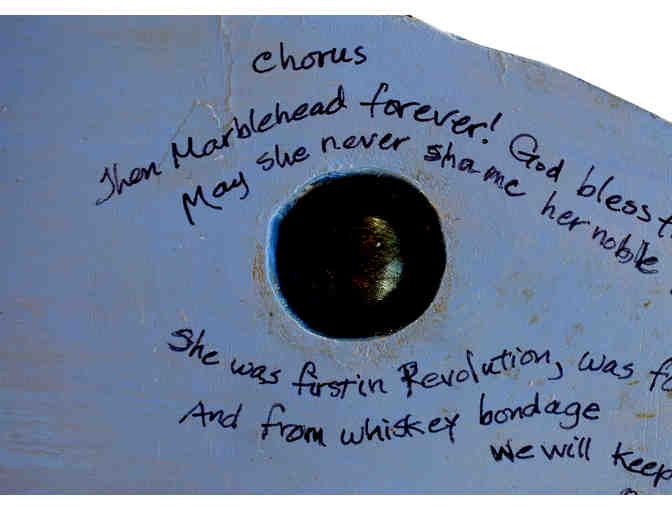 Chorus
Then Marblehead forever! God bless
May she never shame her noble
She was first in Revolution, was
And from whiskey bondage
We will keep